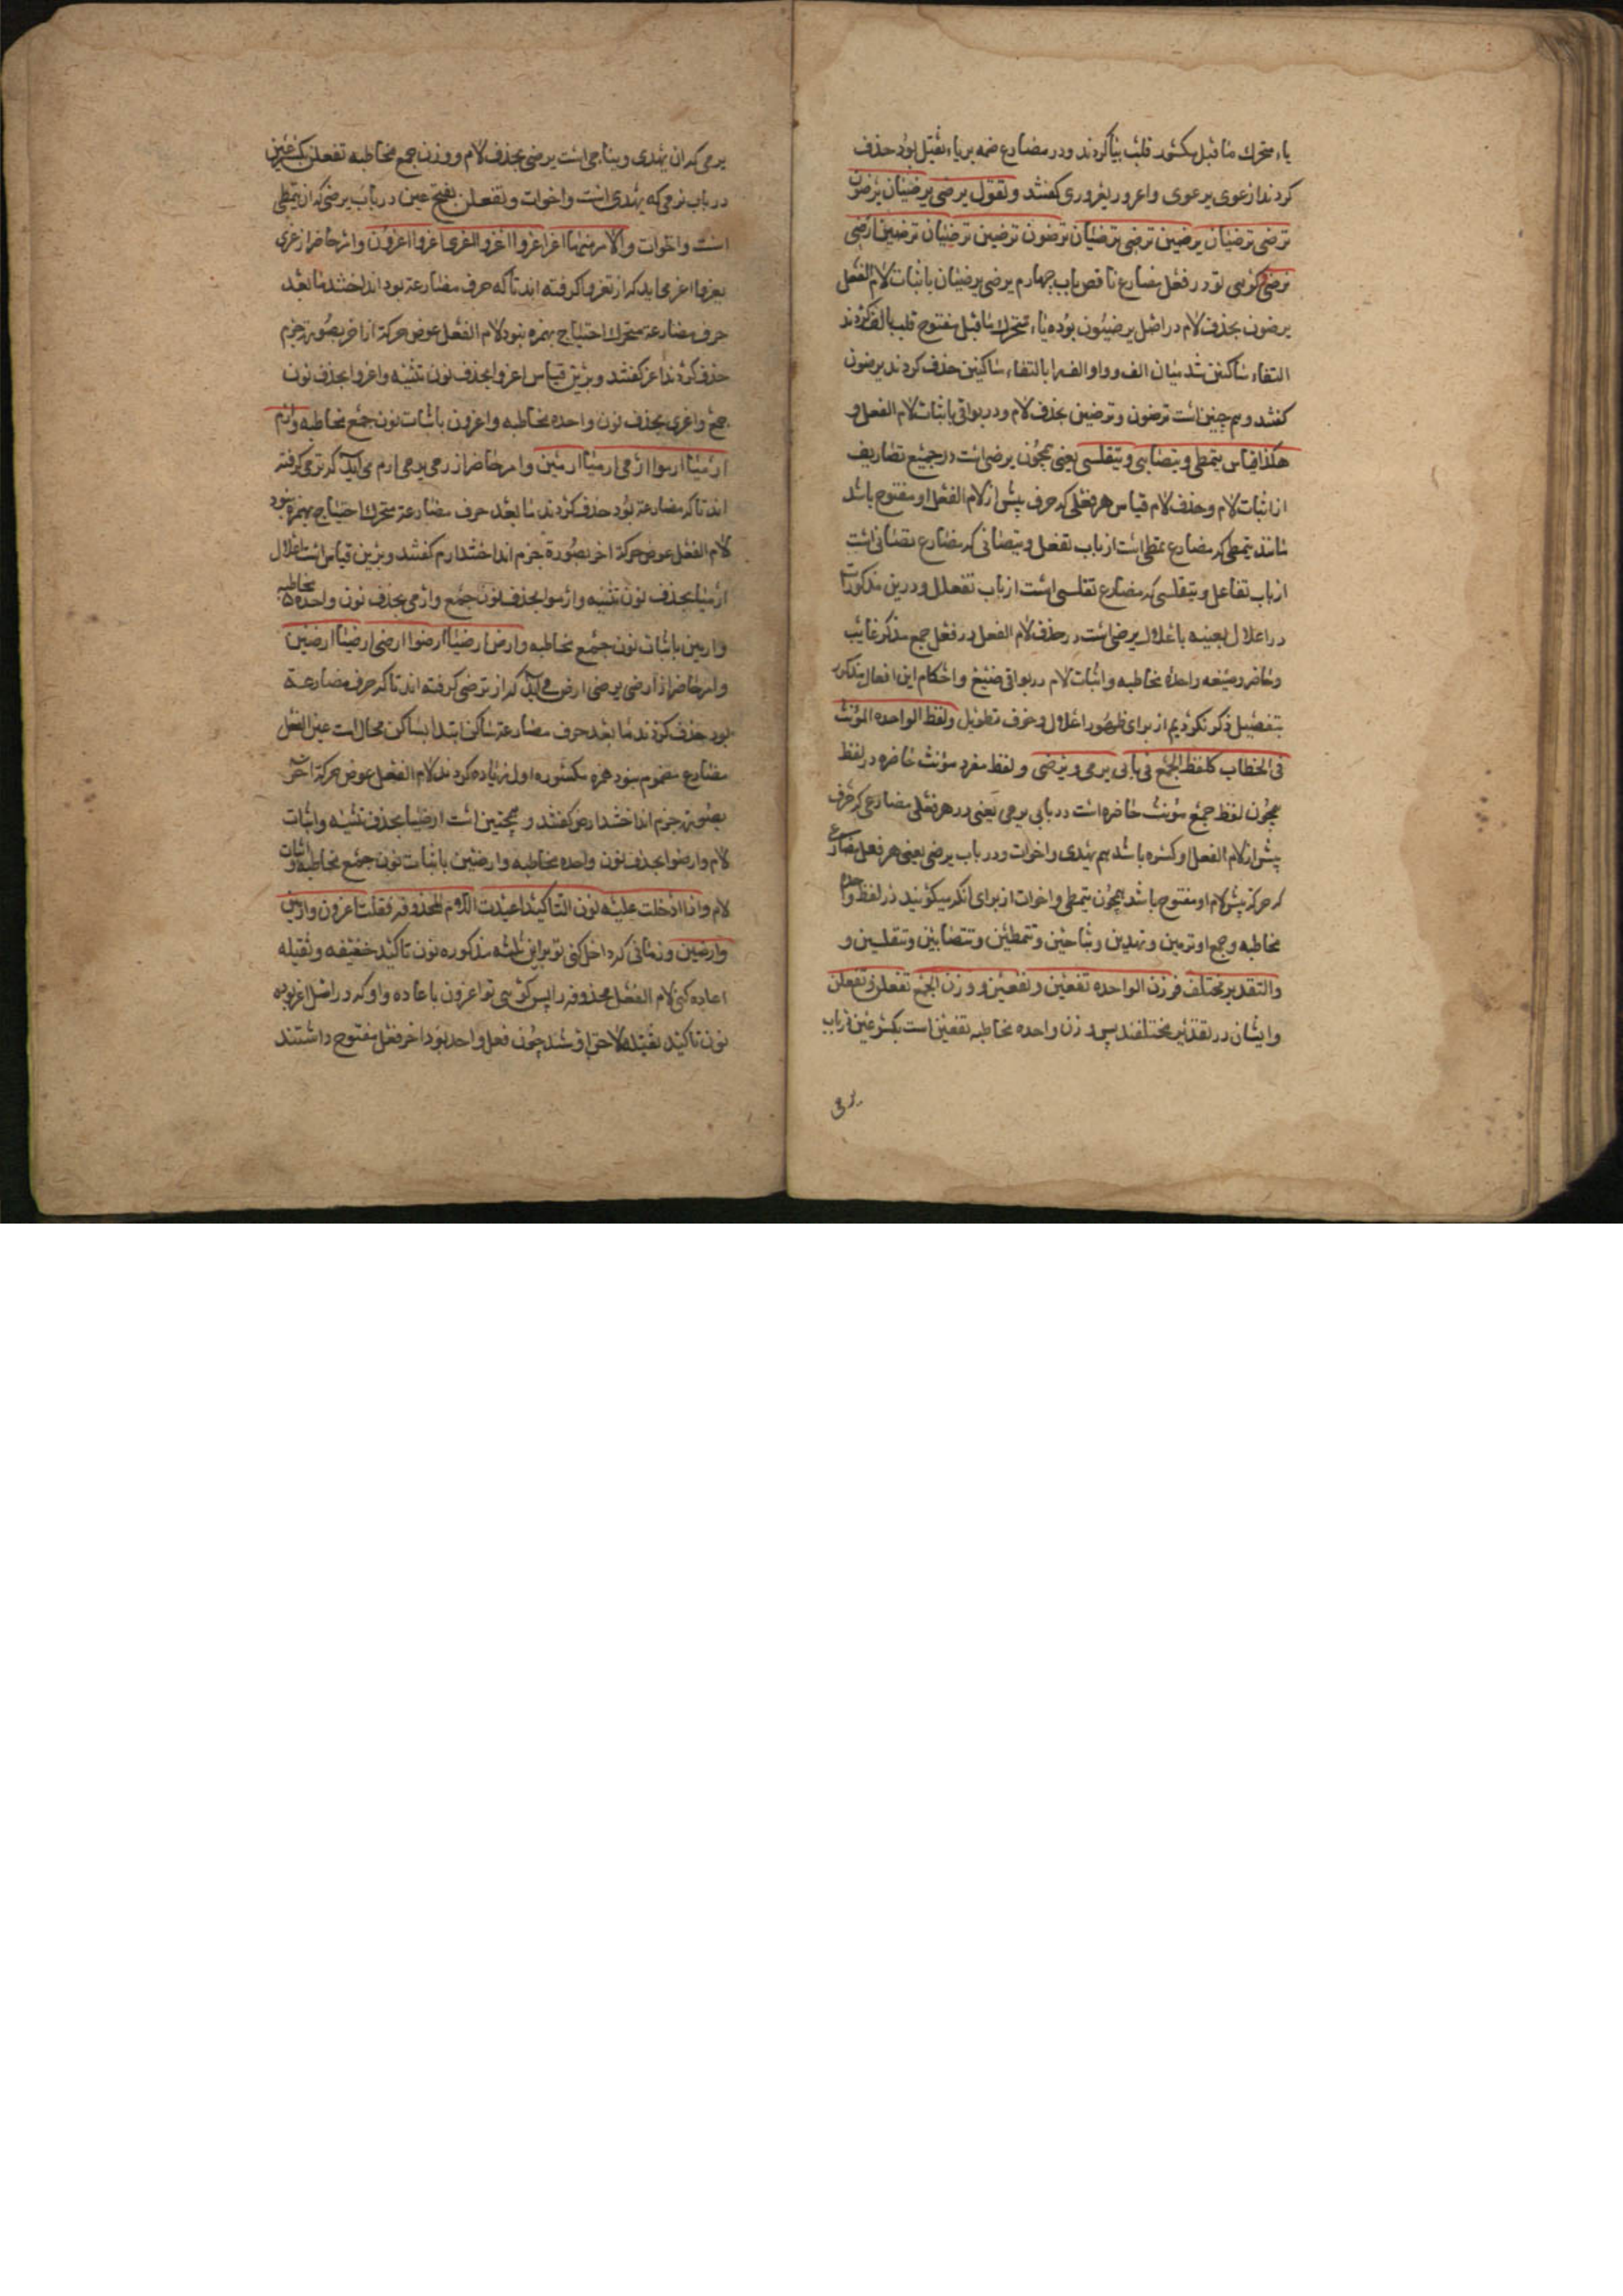 یاء متحرك ما قبل مکسور قلب بیا کردند و در مضارع ضمه بر یاء ثقیل بود حذف
کردند ارعوی یرعوی و اعروری یعروری کفتند و تقول یرضی یرضیان یرضون
ترضی ترضیان یرضین ترضی ترضیان ترضون ترضین ترضیان ترضین ارضی
نرضی کوئی تو در فعل مضارع ناقص باب چهارم یرضی یرضیان باثبات لام الفعل
یرضون بحذف لام در اصل یرضیون بوده یاء متحرك ما قبل مفتوح قلب بالف کردند
التقاء ساکنین شد میان الف و واو الف را بالتقاء ساکنین حذف کردند یرضون
کفتند و هم چنین است ترضون و ترضین بحذف لام و در بواقی باثبات لام الفعل و
هکذا قیاس یتمطی و یتصابی و یتقلسی یعنی همچون یرضی است در جمیع تصاریف
از اثبات لام و حذف لام قیاس هر فعلی که حرف پیش از لام الفعل او مفتوح باشد
مانند یتمطی که مضارع تمطی است از باب تفعل و یتصابی که مضارع تصابی است
از باب تفاعل و یتقلسی که مضارع تقلسی است از باب تفعلل و درین مذکورات
در اعلال بعینه باعلال یرضی است در حذف لام الفعل در فعل جمع مذکر غایب
و حاضر و صیغه واحده مخاطبه و اثبات لام در بواقی صیغ و احکام این افعال مذکور
بتفصیل ذکر نکردیم از برای ظهور اعلال و خوف تطویل و لفظ الواحده المؤنث
فی الخطاب کلفظ الجمع فی بابی یرمی و یرضی و لفظ مفرد مؤنث حاضره در لفظ
همچون لفظ جمع مؤنث حاضره است در بابی یرمی یعنی در هر فعلی مضارعی که حرف
پیش از لام الفعل او کسره باشد هم یهدی و اخوات و در باب یرضی یعنی هر فعل مضارع
که حرکة پیش لام او مفتوح باشد همچون یتمطی و اخوات از برای آنکه میکوئید در لفظ واحده
مخاطبه و جمع او ترمین و تهدین و تناجین و تتمطین و تتصابین و تتقلسین و
والتقدیر مختلف فوزن الواحده تفعین و تفعین و وزن الجمع تفعلن و تفعلن
و ایشان در تقدیر مختلفند پس وزن واحده مخاطبه تفعین است بکسر عین در باب
یرمی
یرمی که آن یهدی و یناجی است یرضی بحذف لام و وزن جمع مخاطبه تفعلن بکسر عین
در باب ترمی که یهدی است و اخوات و تفعلن بفتح عین در باب یرضی که آن یتمطی
است و اخوات و الامر منها اغز اغزوا اغزوا اغزی اغزوا اغزون و امر حاضر از غزی
یغزوا اغز می آید که از تغزوا کرفته اند تا که حرف مضارعة بود انداختند ما بعد
حرف مضارعة متحرك احتیاج بهمزه نبود لام الفعل عوض حرکة از آخر بصورة جزم
حذف کردند اغز کفتند و برین قیاس اغزوا بحذف نون تثنیه و اغزوا بحذف نون
جمع و اغزی بحذف نون واحده مخاطبه و اغزون باثبات نون جمع مخاطبه و ارم
ارمیا ارموا ارمی ارمیا ارمین و امر حاضر از رمی یرمی ارم می آید که ترمی کرفته
اند تا که مضارعة بود حذف کردند ما بعد حرف مضارعة متحرك احتیاج بهمزه نبود
لام الفعل عوض حرکة آخر بصورة جزم انداختند ارم کفتند و برین قیاس است اعلال
ارمیا بحذف نون تثنیه و ارموا بحذف نون جمع و ارمی بحذف نون واحده مخاطبه
و ارمین باثبات نون جمع مخاطبه و ارض ارضیا ارضوا ارضی ارضیا ارضین
و امر حاضر از ارضی یرضی ارض می آید که از ترضی کرفته اند تا که حرف مضارعة
بود حذف کردند ما بعد حرف مضارعة ساکن ابتدا بساکن محال است عین الفعل
مضارع مضموم نبود همزه مکسوره اول زیاده کردند لام الفعل عوض حرکة آخر
بصورة جزم انداختند ارض کفتند و همچنین است ارضیا بحذف تثنیه و اثبات
لام و ارضوا بحذف نون واحده مخاطبه و ارضین باثبات نون جمع مخاطبه و اثبات
لام و اذا ادخلت علیه نون التاکید اعیدت اللام المحذوفه فقلت اغزون و ارمین
و ارضین و زمانی که داخل کنی تو بر این ثلثه مذکوره نون تاکید خفیفه و ثقیله
اعاده کنی لام الفعل محذوفه را پس کوئی تو اغزون باعاده واو که در اصل اغز بوده
نون تاکید ثقیله لاحق او شد چون فعل واحد بود آخر فعل مفتوح داشتند